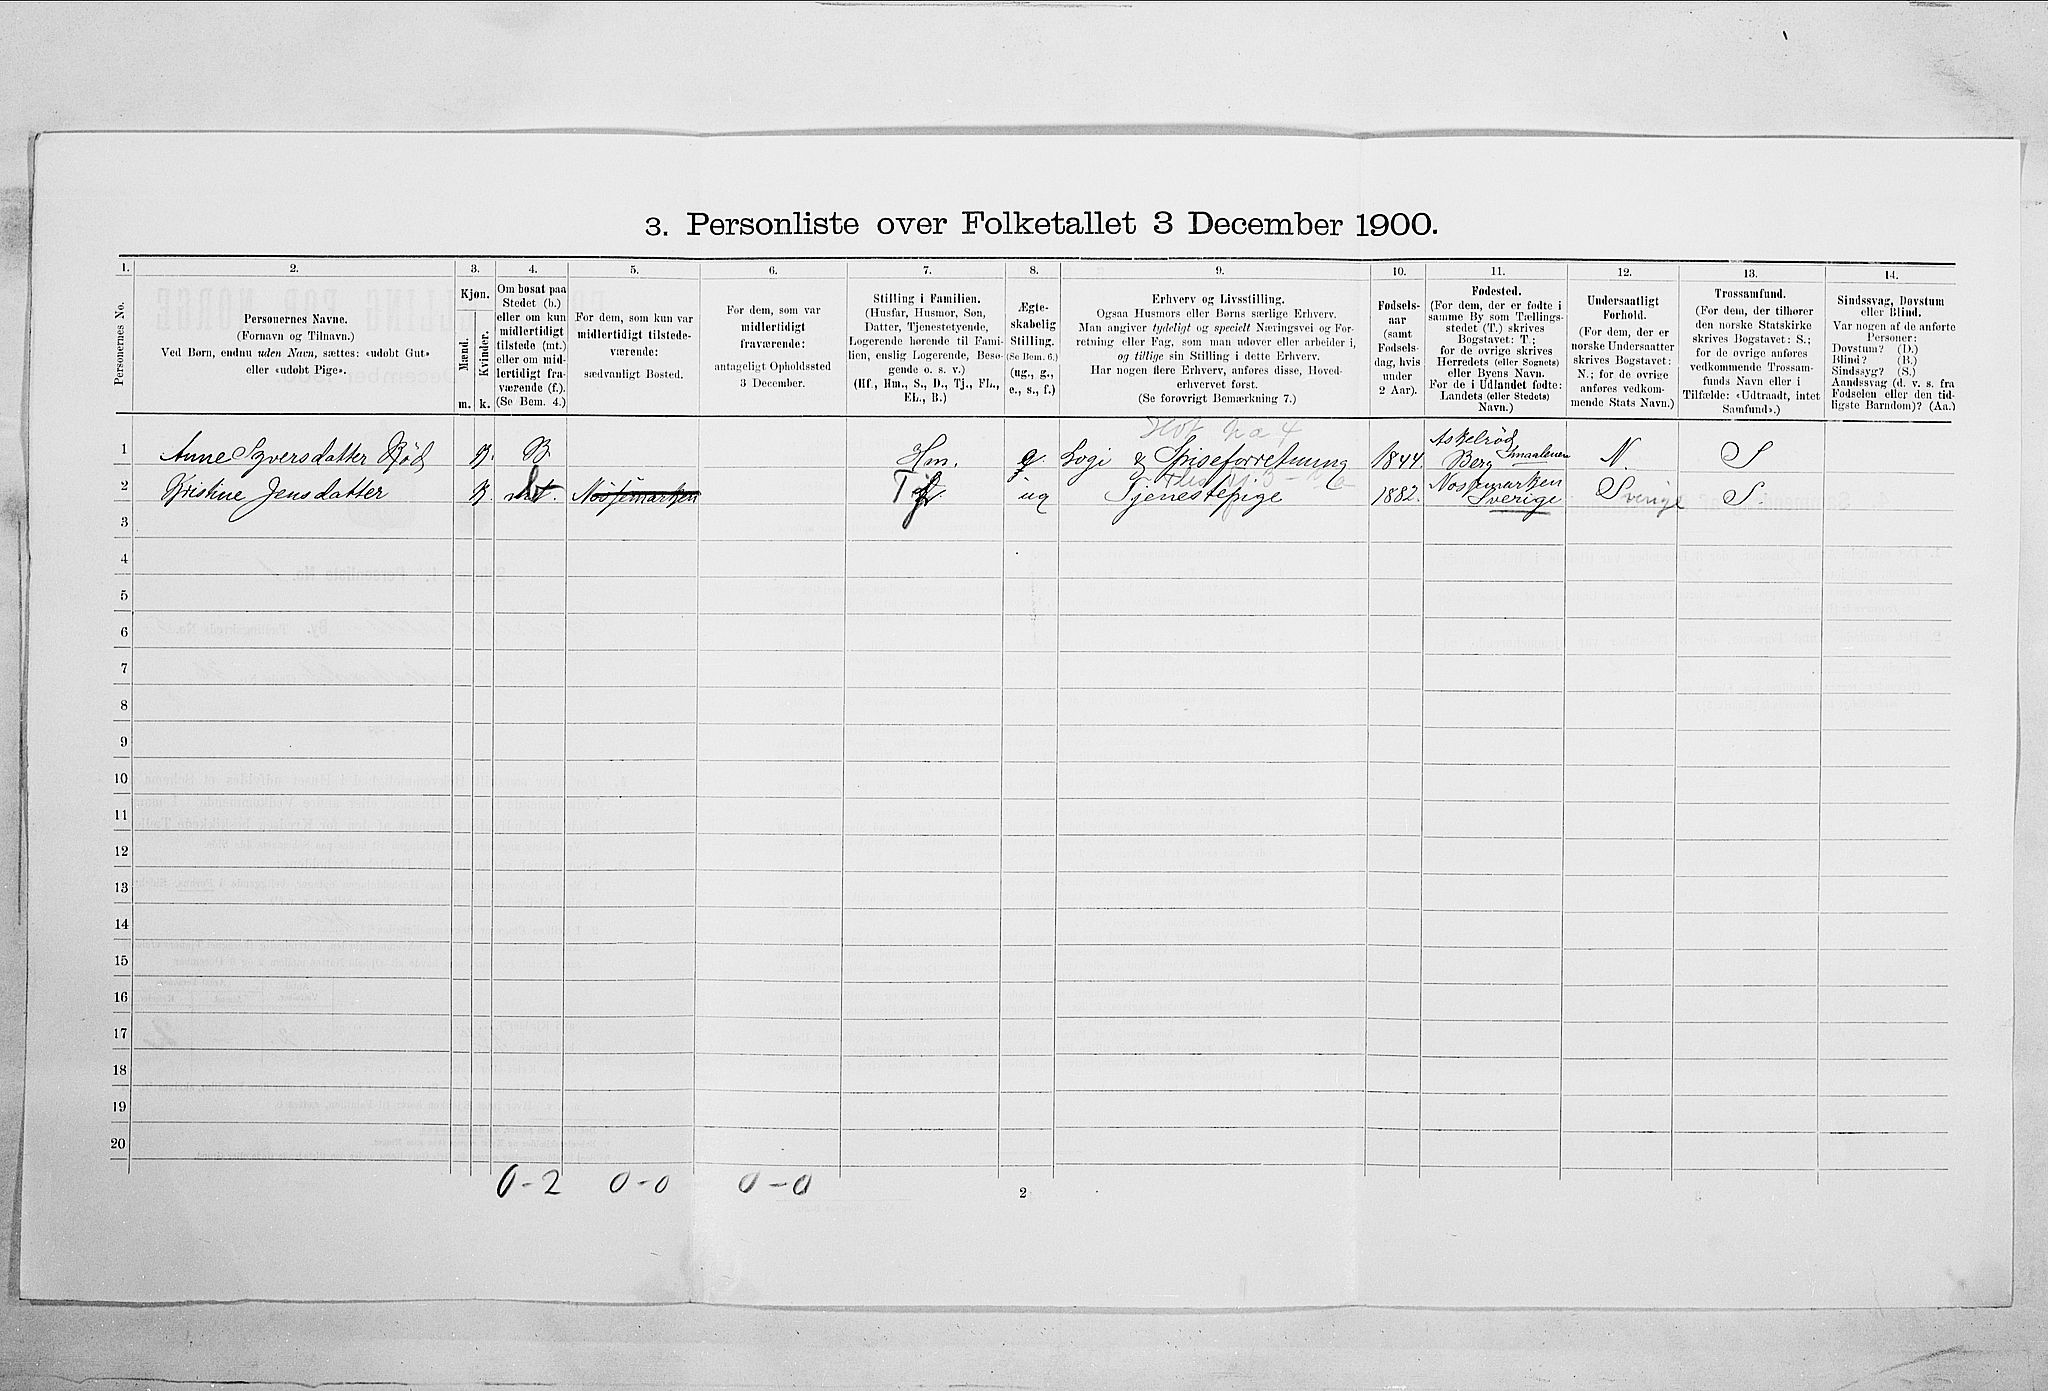 3. Personliste over Folketallet 3 December 1900.
1. 2. 3. 4. 5. 6. 7. 8. 9. 10. 11. 12. 13. 14.
Personernes No.
Personernes Navne.
(Fornavn og Tilnavn.)
Ved Børn, endnu uden Navn, sættes: «udøbt Gut»
eller «udøbt Pige».
Kjøn.
Mænd.
Kvinder.
m. k.
Om bosat paa
Stedet (b.)
eller om kun
midlertidigt
tilstede (mt.)
eller om mid-
lertidigt fra-
værende (f.).
(Se Bem. 4.)
For dem, som kun var
midlertidigt tilstede-
værende:
sædvanligt Bosted.
For dem, som var
midlertidigt
fraværende:
antageligt Opholdssted
3 December.
Stilling i Familien.
(Husfar, Husmor, Søn,
Datter, Tjenestetyende,
Logerende hørende til Fami-
lien, enslig Logerende, Besø-
gende o. s. v.)
(Hf., Hm., S., D., Tj., FL.,
EL., B.)
Ægte-
skabelig
Stilling.
(Se Bem. 6.)
(ug., g.,
e., s., f.)
Erhverv og Livsstilling.
Ogsaa Husmors eller Børns særlige Erhverv.
Man angiver tydeligt og specielt Næringsvei og For-
retning eller Fag, som man udøver eller arbeider i,
og tillige sin Stilling i dette Erhverv.
Har nogen flere Erhverv, anføres disse, Hoved-
erhvervet først.
(Se forøvrigt Bemærkning 7.)
Fødsels-
aar
(samt
Fødsels-
dag, hvis
under
2 Aar).
Fødested.
(For dem, der er fødte i
samme By som Tællings-
stedet (T.) skrives
Bogstavet: T.;
for de øvrige skrives
Herredets (eller Sognets)
eller Byens Navn.
For de i Udlandet fødte:
Landets (eller Stedets)
Navn.)
Undersaatligt
Forhold.
(For dem, der er
norske Undersaatter
skrives Bogstavet:
N.; for de øvrige
anføres vedkom-
mende Stats Navn.)
Trossamfund.
(For dem, der tilhører
den norske Statskirke
skrives Bogstavet: S.;
for de øvrige anføres
vedkommende Trossam-
funds Navn eller i
Tilfælde: «Udtraadt, intet
Samfund».)
Sindssvag, Døvstum
eller Blind.
Var nogen af de anførte
Personer:
Døvstum? (D.)
Blind? (B.)
Sindssyg? (S.)
Aandssvag (d. v. s. fra
Fødselen eller den tid-
ligste Barndom)? (Aa.)
1 Anne Syversdatter Rød K. B Hm. g. Logi & Spiseforretning 1844. Askelrød Berg Smaalenene N. S
2 Kristine Jensdatter K b. Nössemarken Tj ug Tjenestepige 1882. Nössemarken Sverige Sverige S.
3
4
5
6
7
8
9
10
11
12
13
14
15
16
17
18
19
20
0-2 0-0 0-0
2